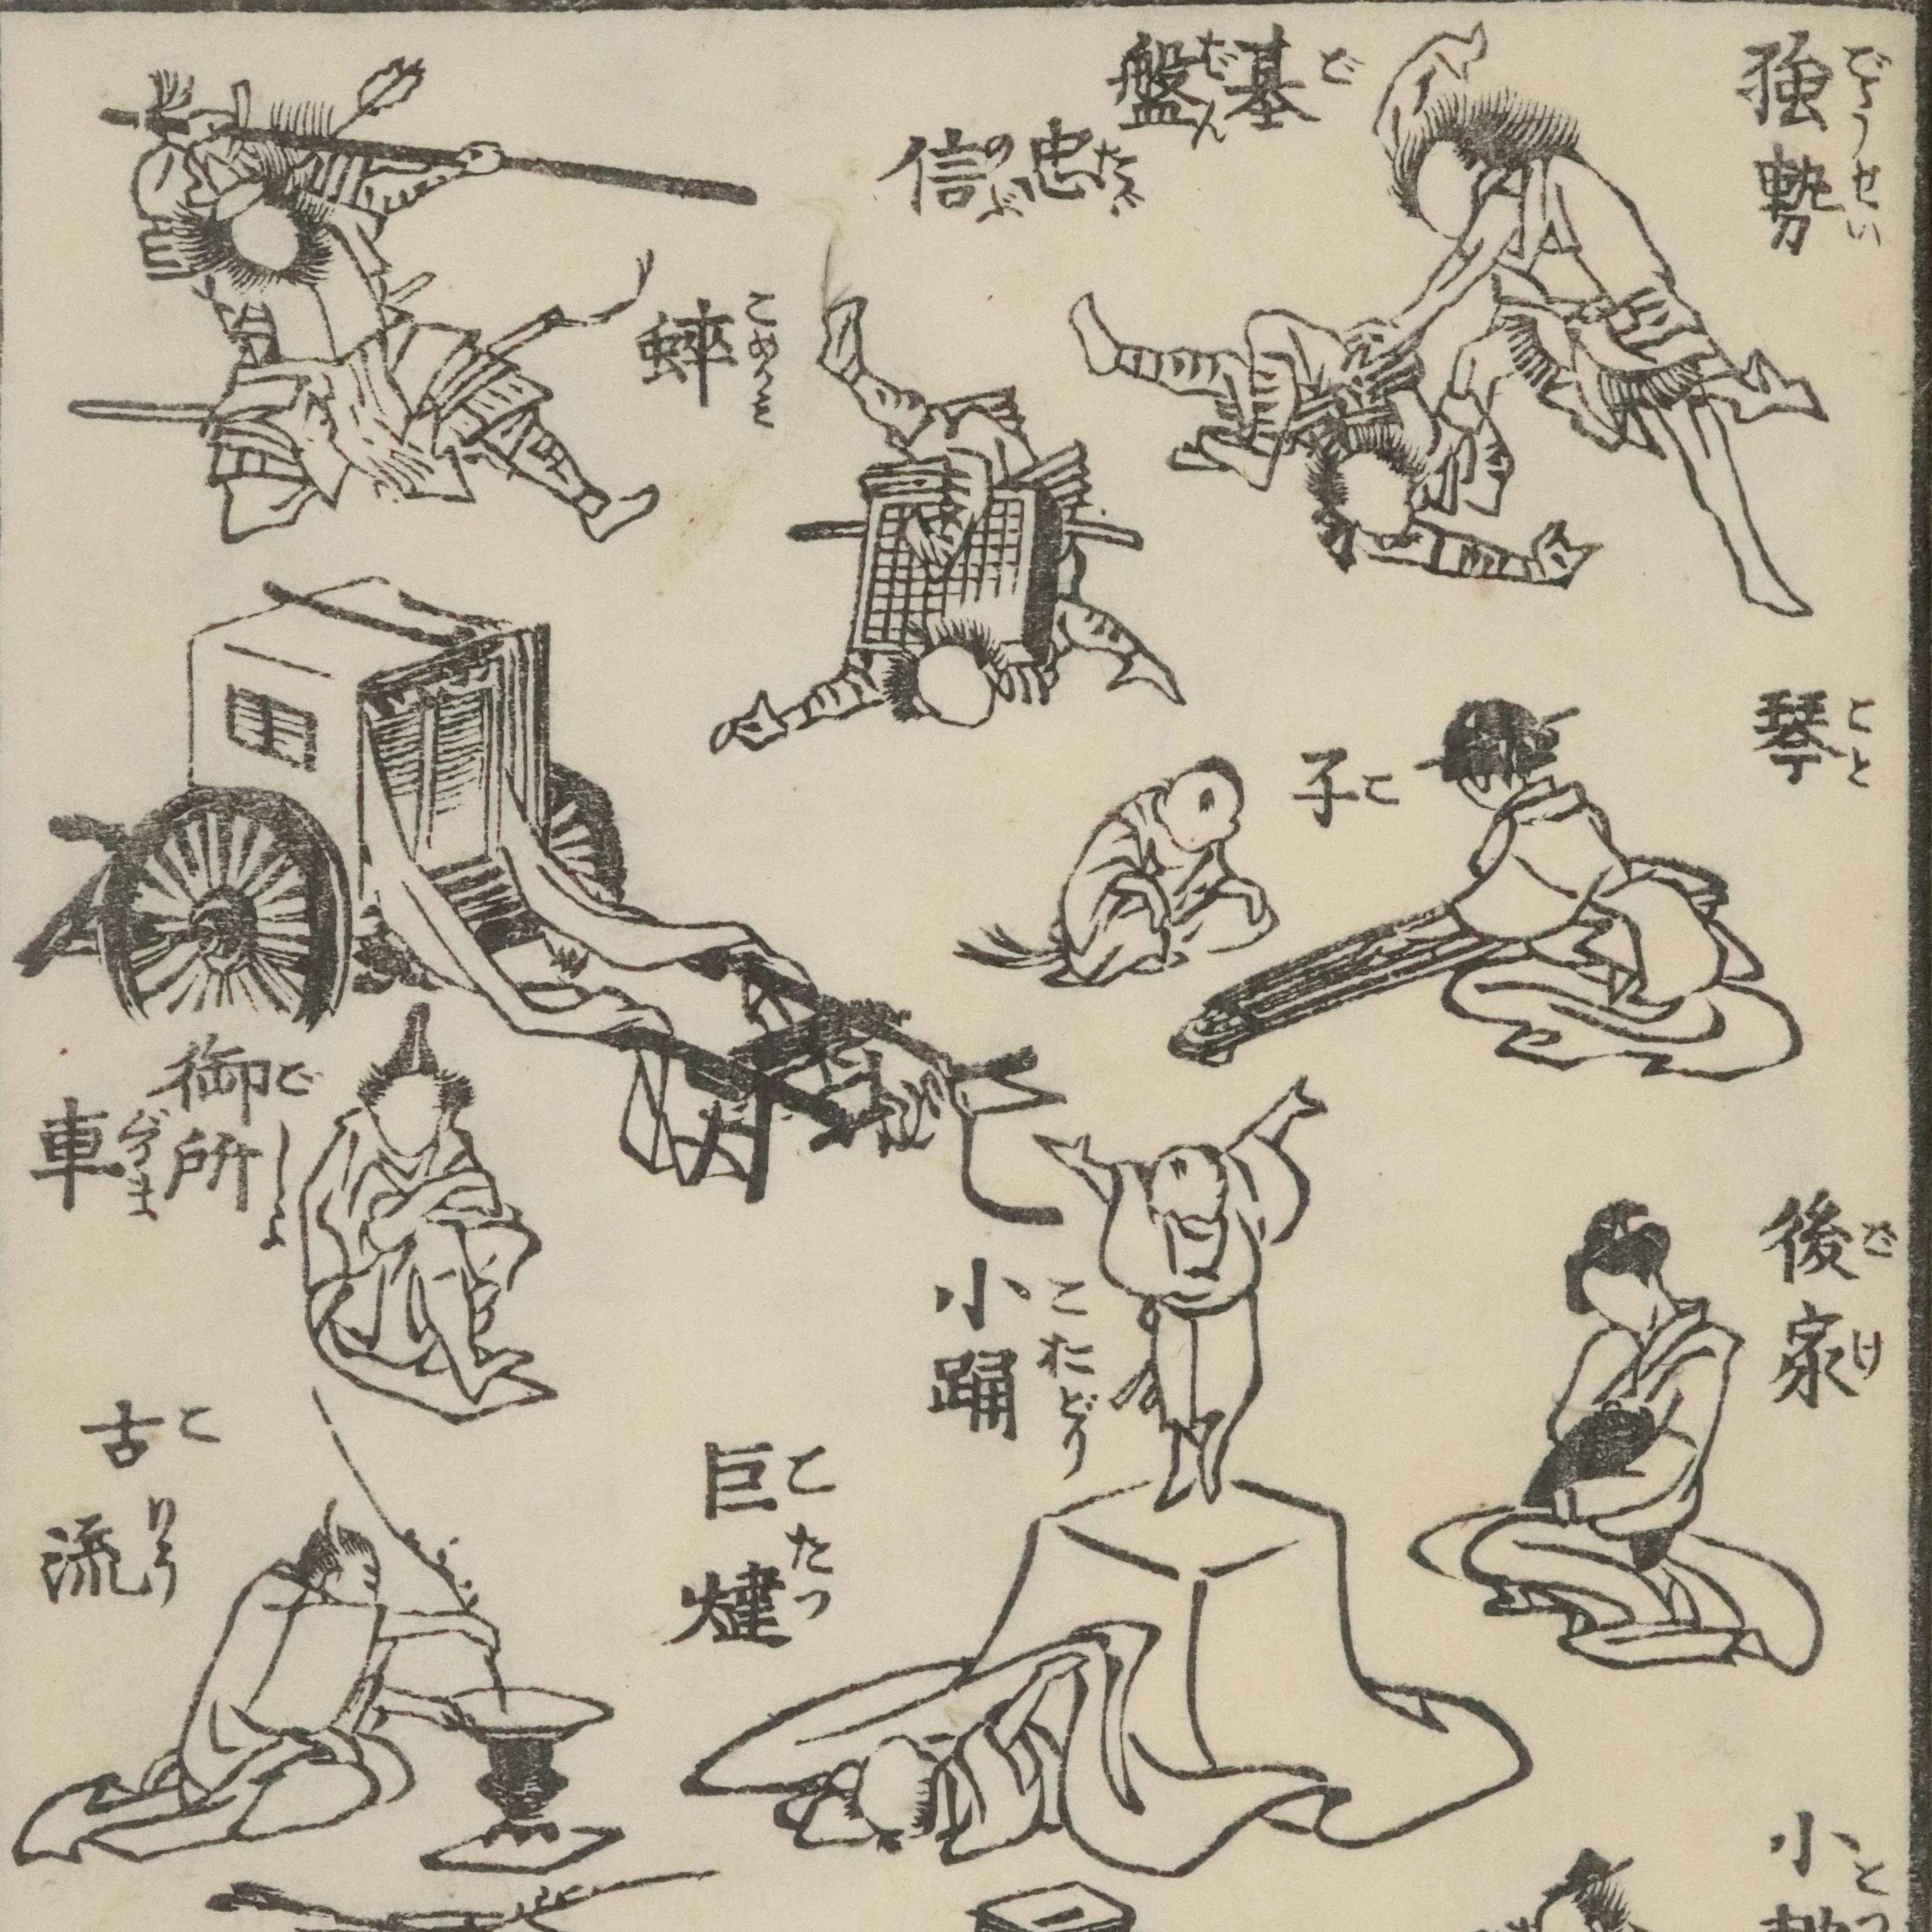 強勢 ごうせい
碁盤 ごばん
忠信 たゞのぶ
琴 こと
子 こ
後家 ごけ
小踊 こおどり
御所車 ごしよぐるま
巨燵 こたつ
古流 こりう
小